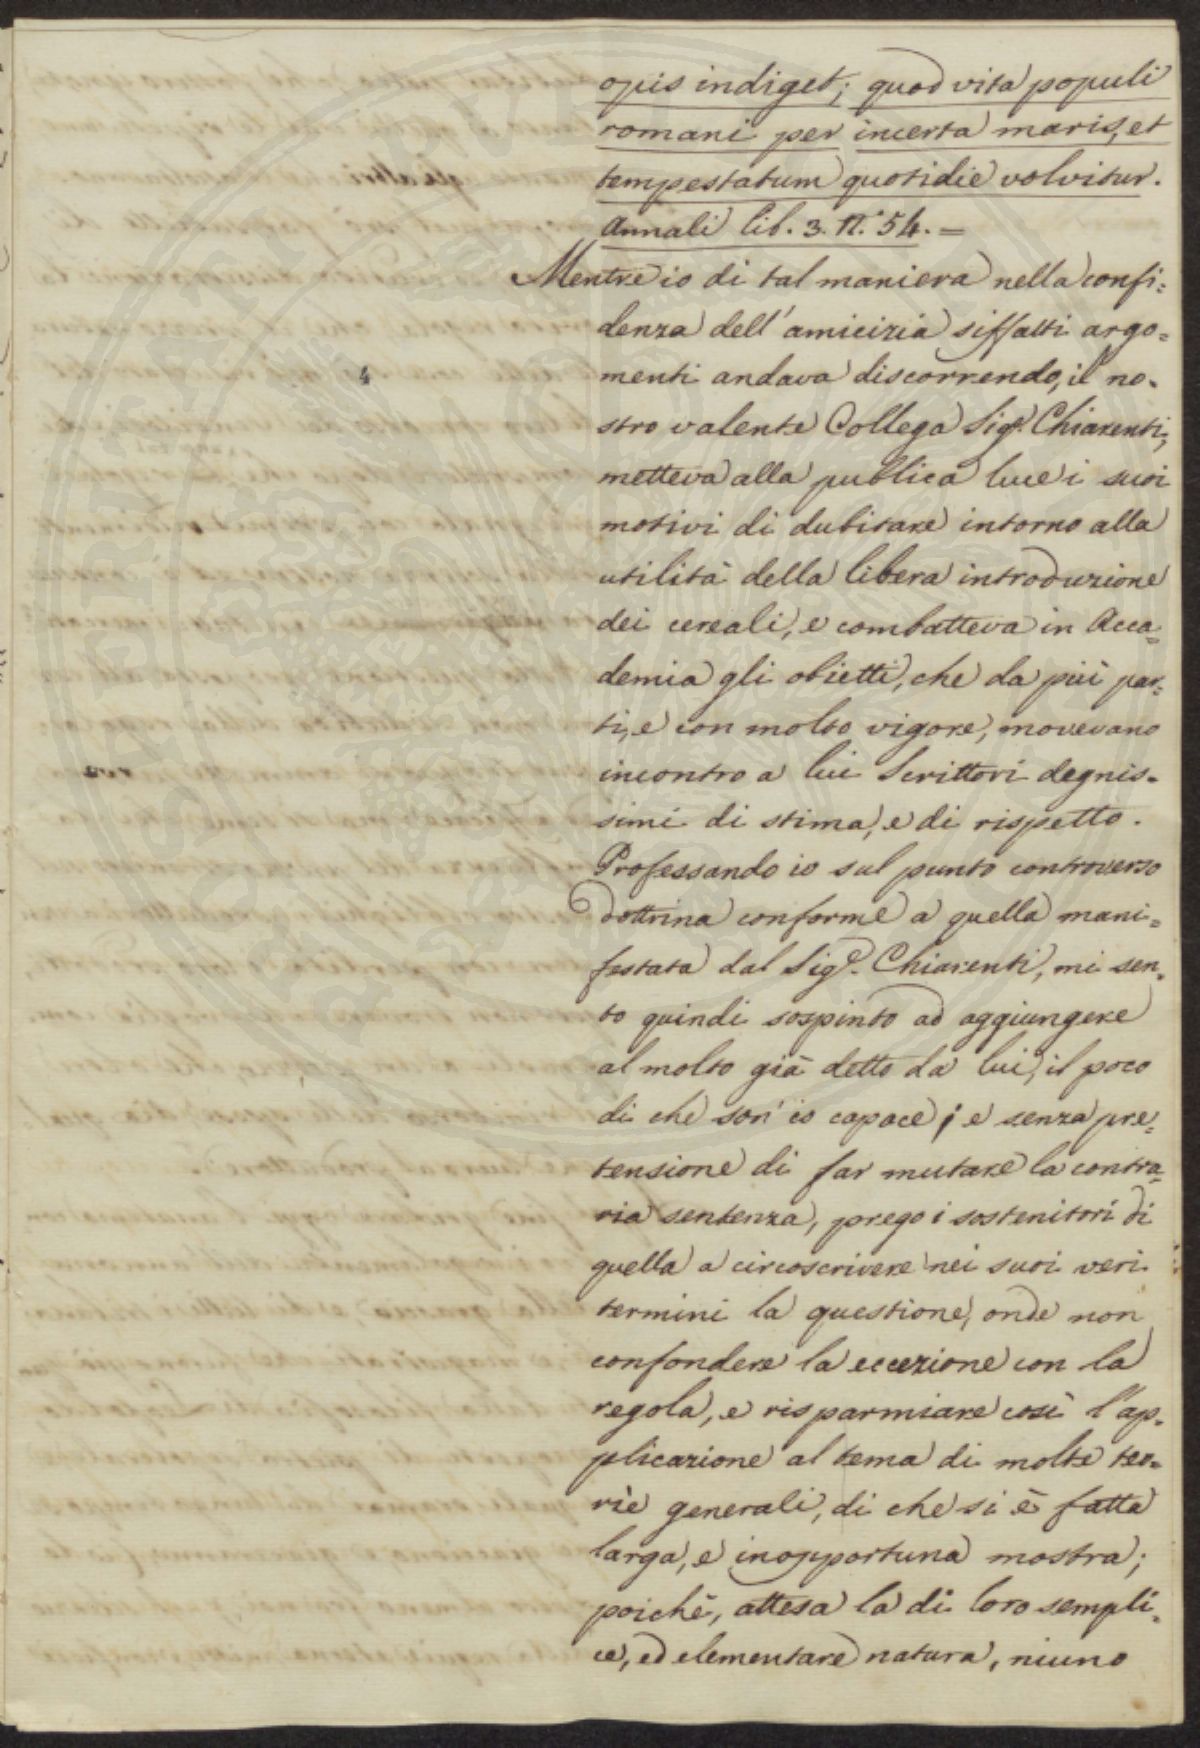 opis indiget; quod vita populi
romani per incerta maris, et
tempestatum quotidie volvitur.
Annali lib. 3. N.° 54. =
Mentre io di tal maniera nella confi=
denza dell'amicizia siffatti argo=
menti andava discorrendo, il no=
stro valente Collega Sig.r Chiarenti,
metteva alla publica luce i suoi
motivi di dubitare intorno alla
utilità della libera introduzione
dei cereali, e combatteva in Acca=
demia gli obietti, che da più par=
ti, e con molto vigore, movevano
incontro a lui Scrittori degnis=
simi di stima, e di rispetto.
Professando io sul punto controverso
dottrina conforme a quella mani=
festata dal Sig.r Chiarenti, mi sen=
to quindi sospinto ad aggiungere
al molto già detto da lui, il poco
di che son' io capace; e senza pre=
tensione di far mutare la contra=
ria sentenza, prego i sostenitori di
quella a circoscrivere nei suoi veri
termini la questione, onde non
confondere la eccezione con la
regola, e risparmiare così l'ap=
plicazione al tema di molte teo=
rie generali, di che si è fatta
larga, e inopportuna mostra;
poichè, attesa la di loro sempli=
ce, ed elementare natura, niuno